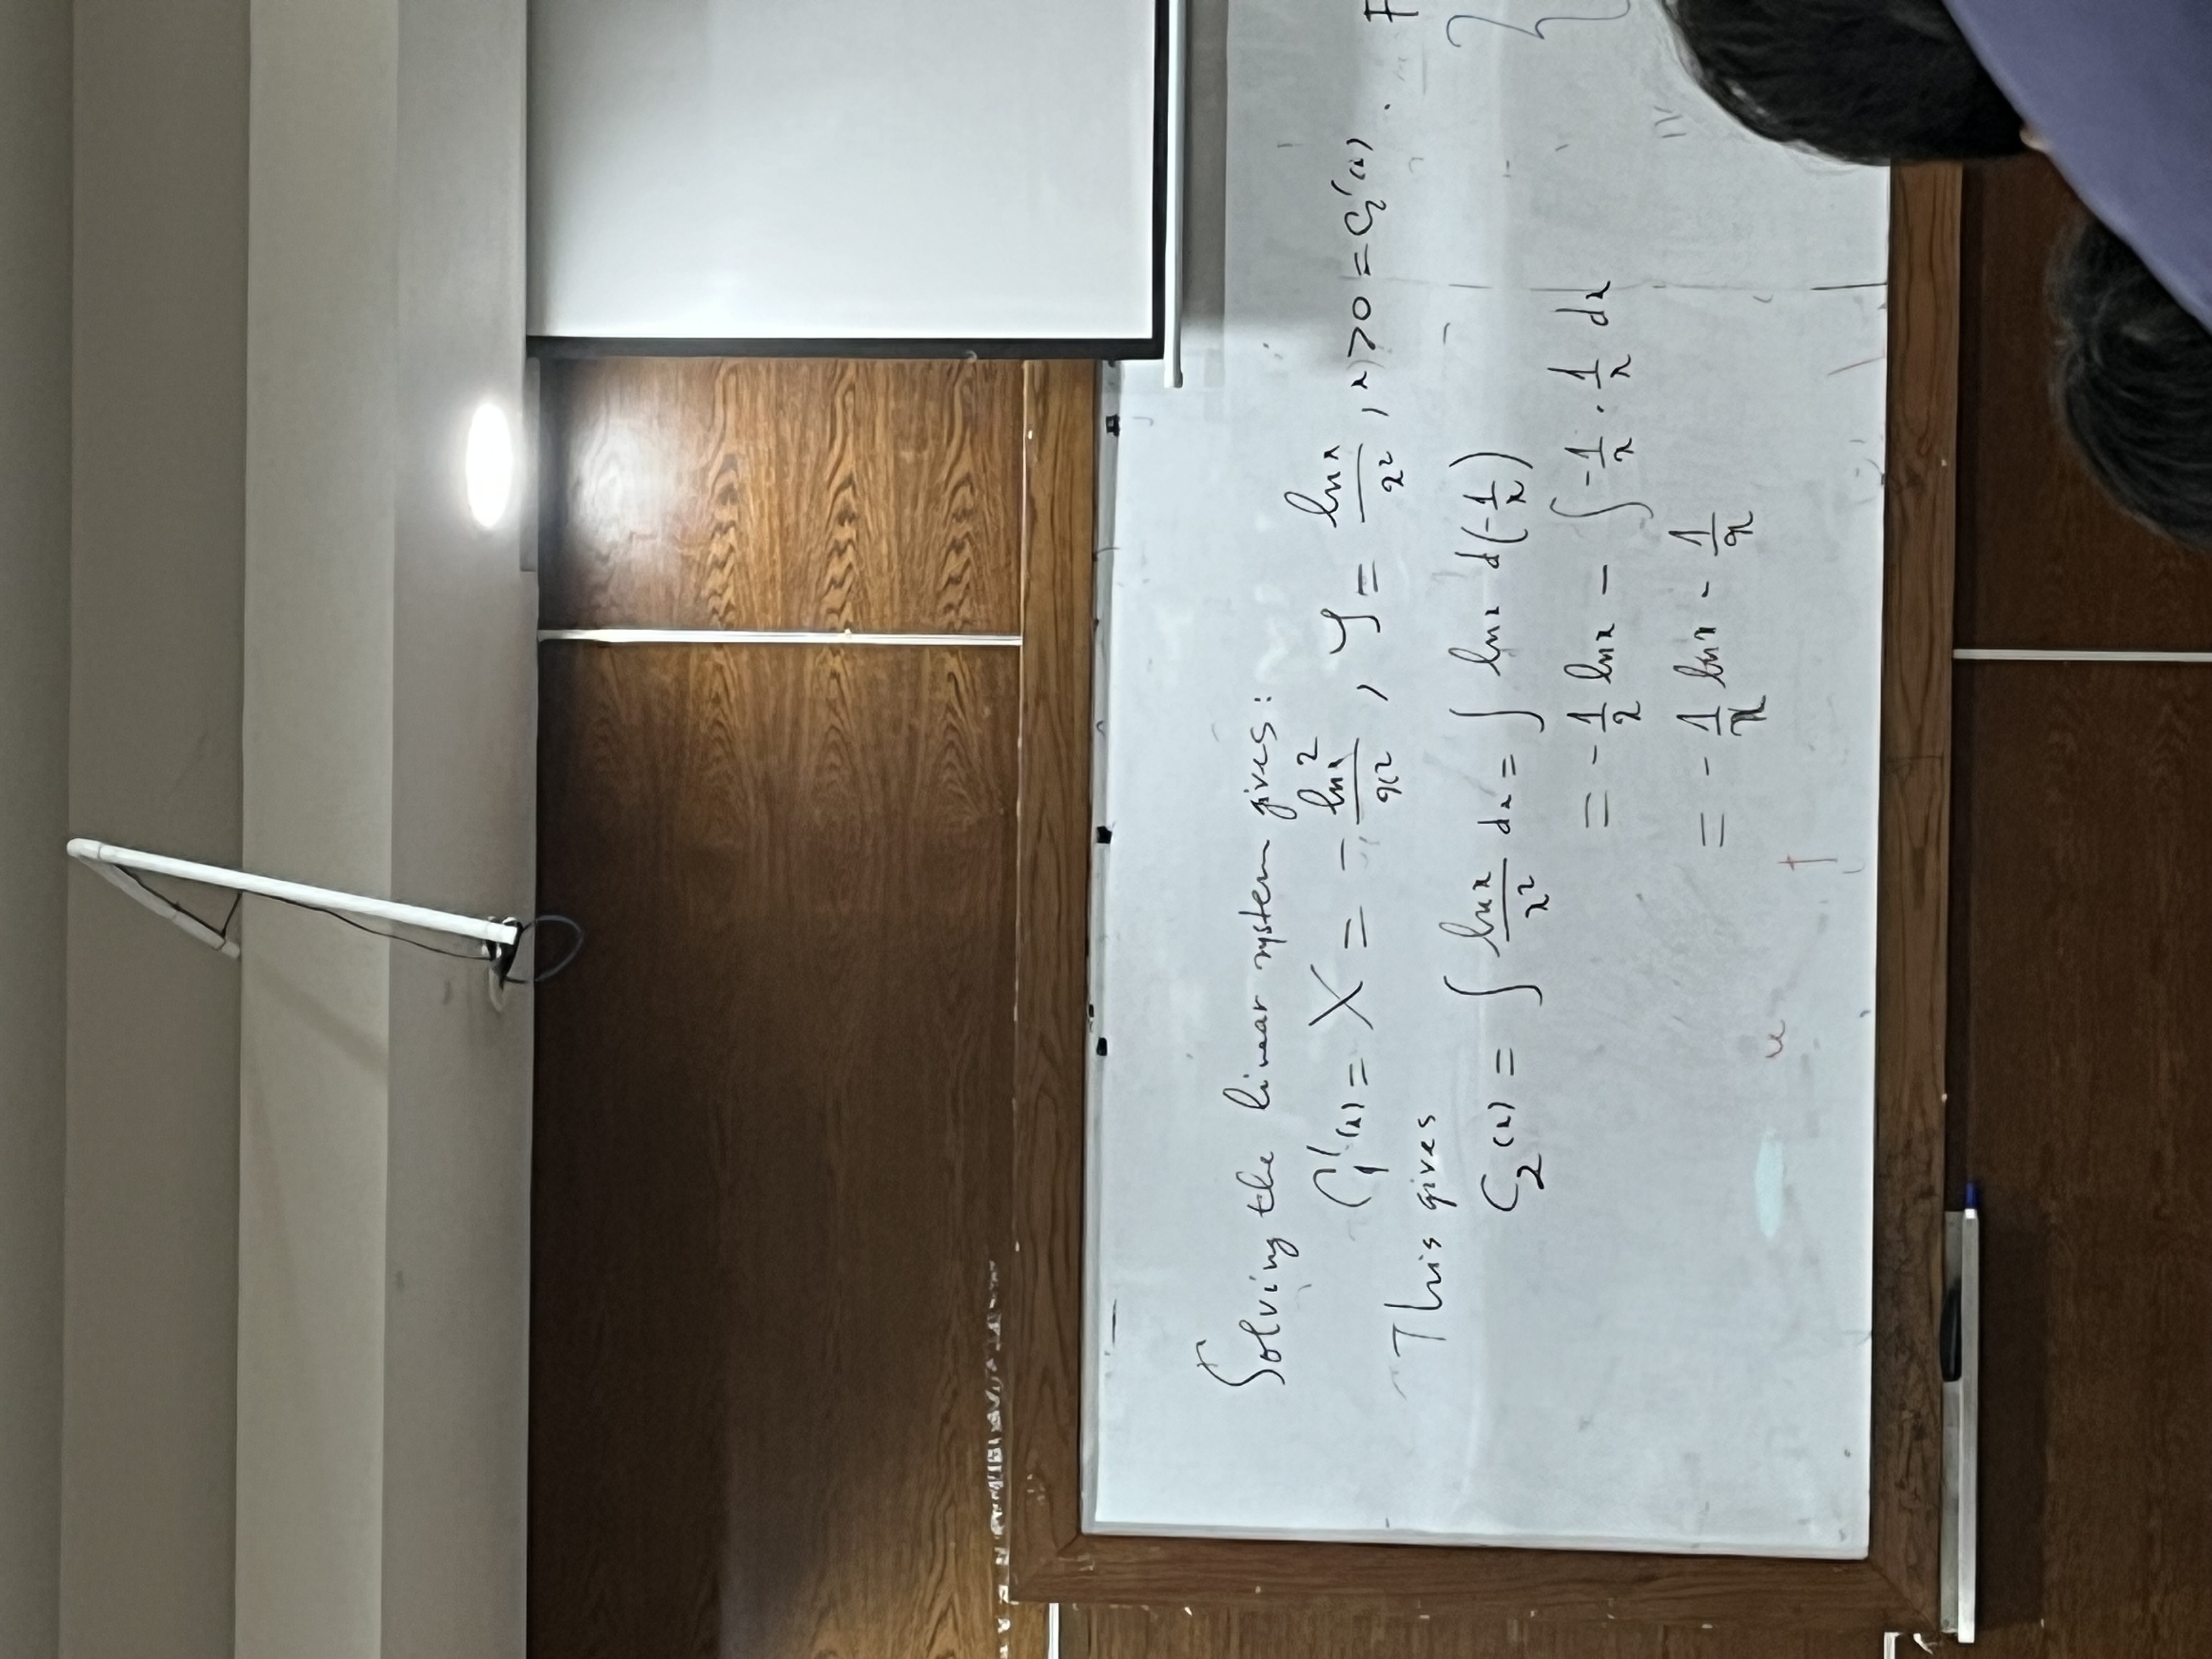 Solving the linear system gives:
C₁'(x) = X = - ln²x / x² , Y = lnx / x² , x > 0 = C₂'(x) .
This gives
C₂(x) = ∫ lnx / x² dx = ∫ lnx d(-1/x)
= - 1/x lnx - ∫ -1/x · 1/x dx
= - 1/x lnx - 1/x